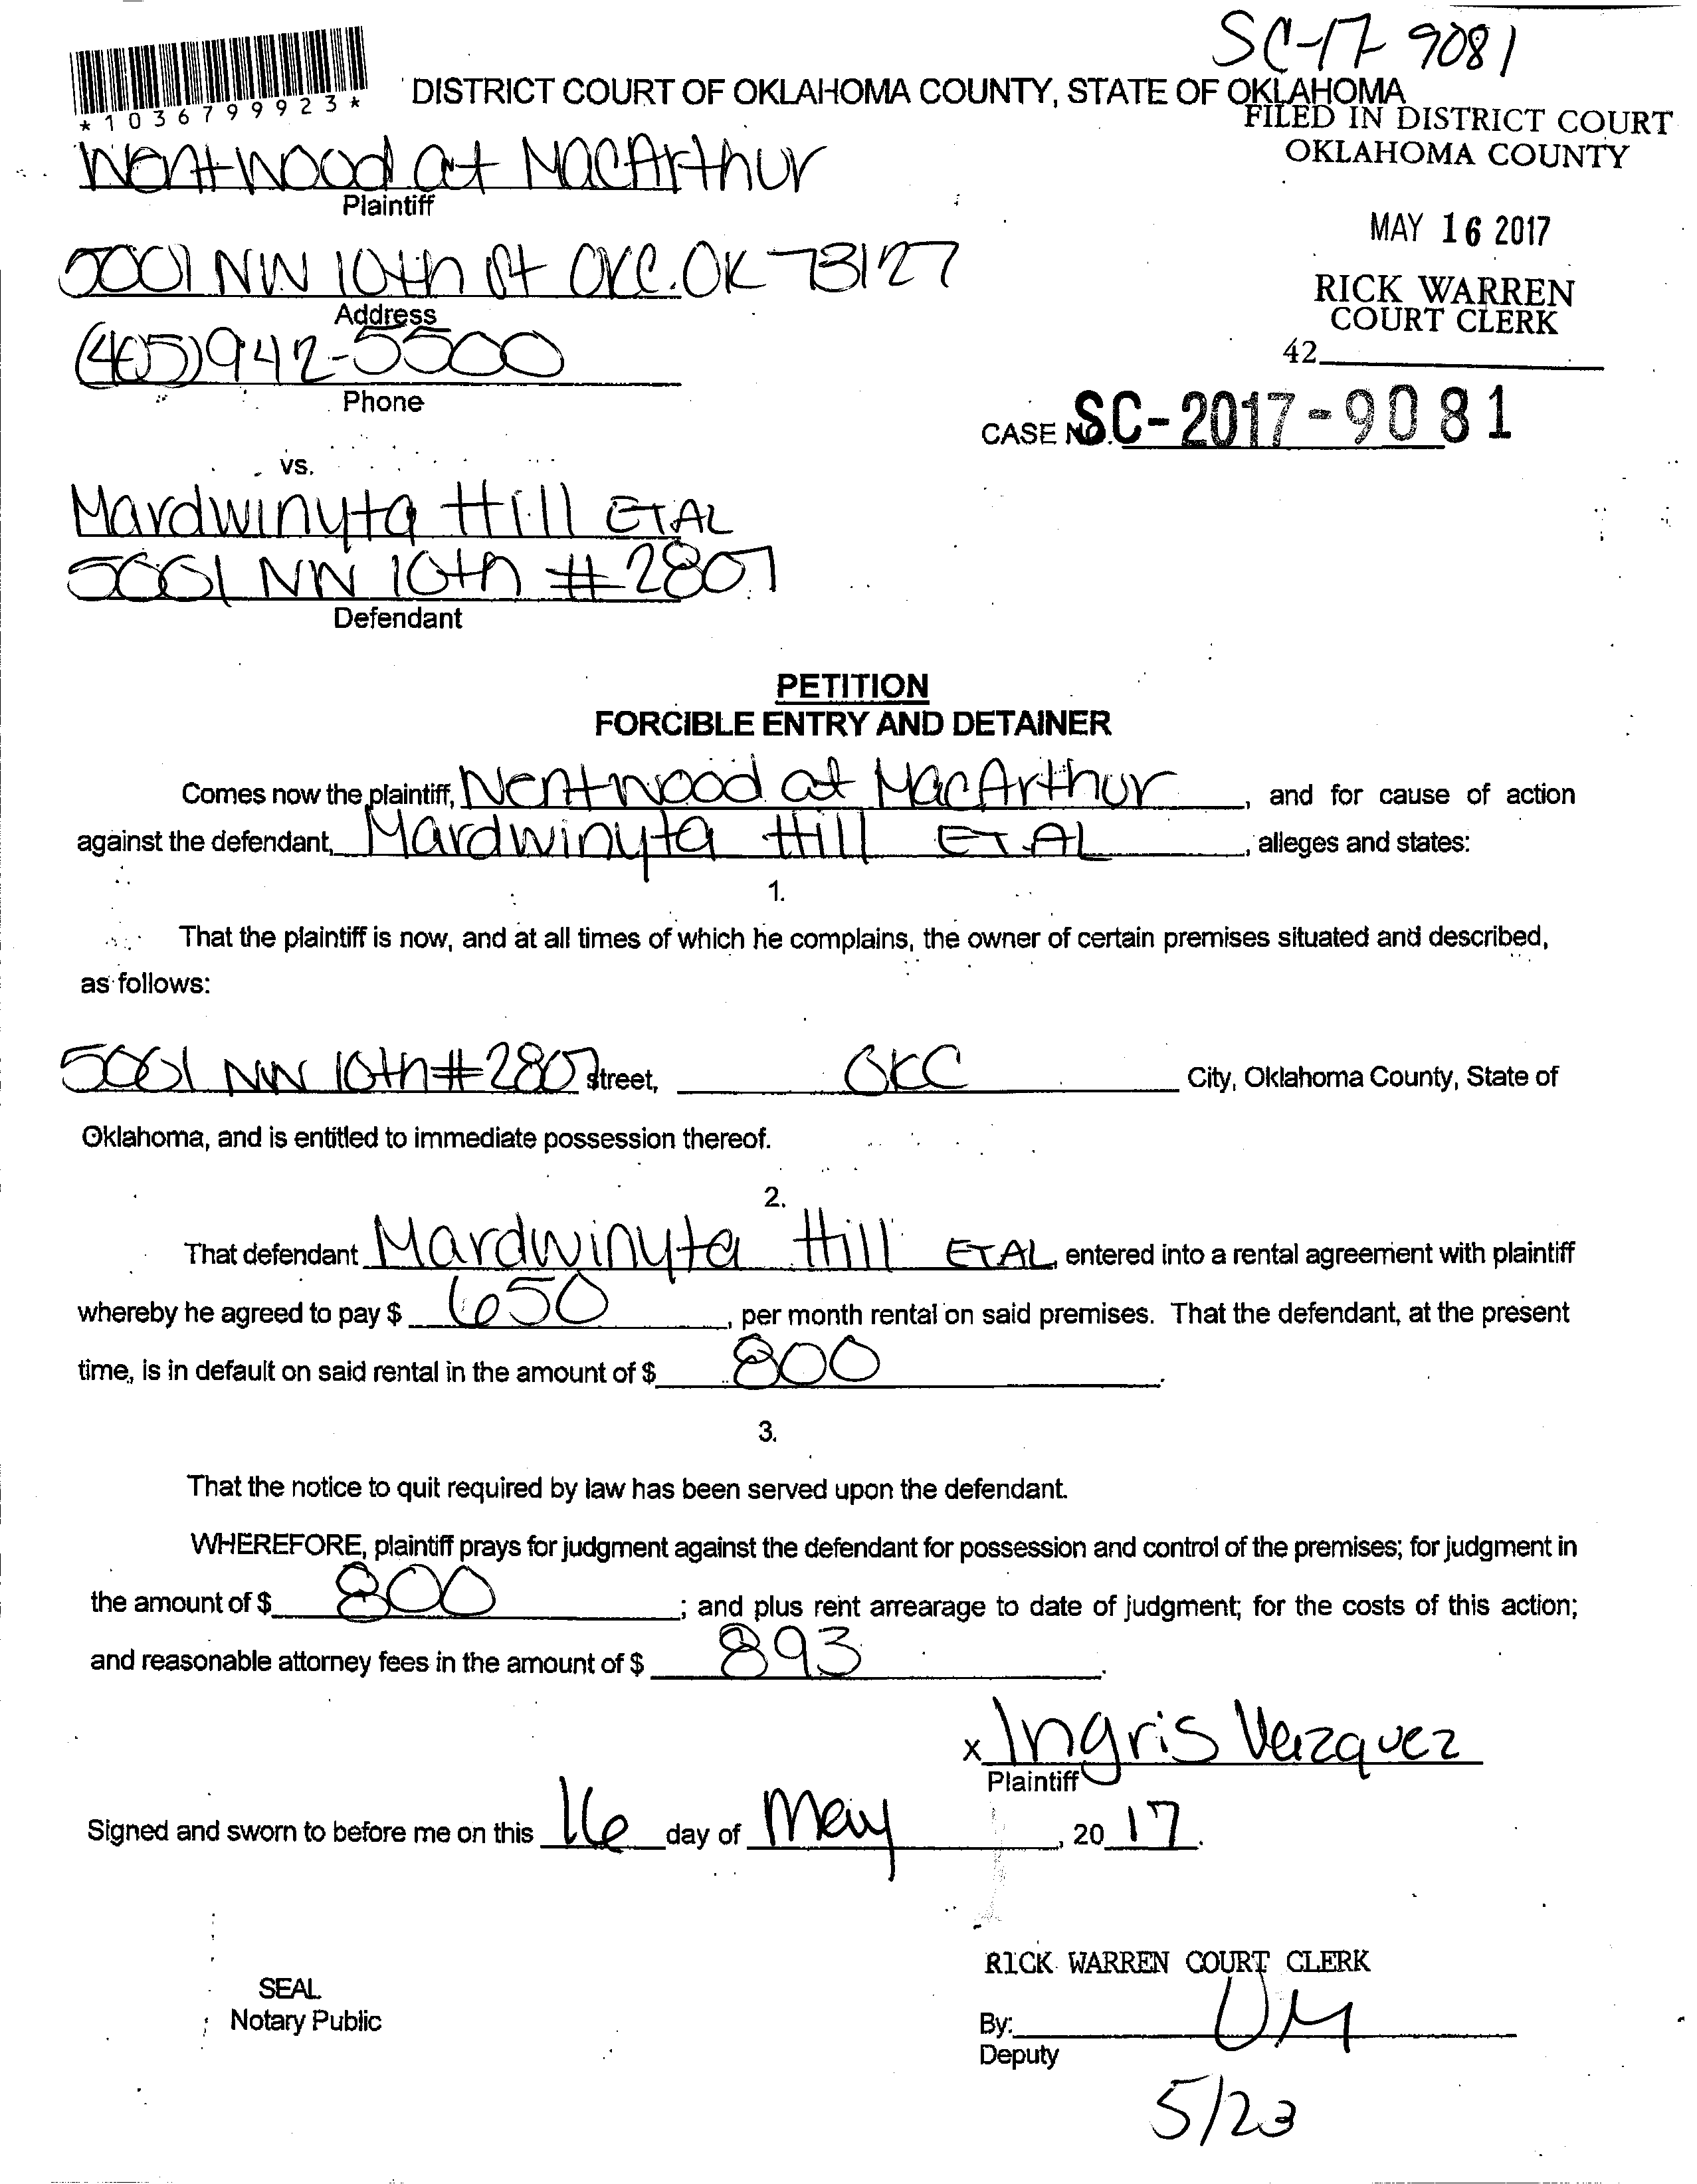 SC-17 9081
*1036799923*
DISTRICT COURT OF OKLAHOMA COUNTY, STATE OF OKLAHOMA
FILED IN DISTRICT COURT
OKLAHOMA COUNTY
Wentwood at MacArthur
Plaintiff
MAY 16 2017
5001 NW 10th St OKC. OK 73127
Address
RICK WARREN
COURT CLERK
(405) 942-5500
Phone
42
CASE NO. SC-2017-9081
vs.
Mardwinyta Hill ETAL
5001 NW 10th # 2807
Defendant
PETITION
FORCIBLE ENTRY AND DETAINER
Comes now the plaintiff, Wentwood at MacArthur, and for cause of action
against the defendant, Mardwinyta Hill ETAL, alleges and states:
1.
That the plaintiff is now, and at all times of which he complains, the owner of certain premises situated and described,
as follows:
5001 NW 10th # 2807 Street, OKC City, Oklahoma County, State of
Oklahoma, and is entitled to immediate possession thereof.
2.
That defendant Mardwinyta Hill ETAL, entered into a rental agreement with plaintiff
whereby he agreed to pay $ 650, per month rental on said premises. That the defendant, at the present
time, is in default on said rental in the amount of $ 800.
3.
That the notice to quit required by law has been served upon the defendant.
WHEREFORE, plaintiff prays for judgment against the defendant for possession and control of the premises; for judgment in
the amount of $ 800; and plus rent arrearage to date of judgment; for the costs of this action;
and reasonable attorney fees in the amount of $ 893.
x Ingris Vazquez
Plaintiff
Signed and sworn to before me on this 16 day of May, 20 17.
RICK WARREN COURT CLERK
SEAL
Notary Public
By:
Deputy
5/23